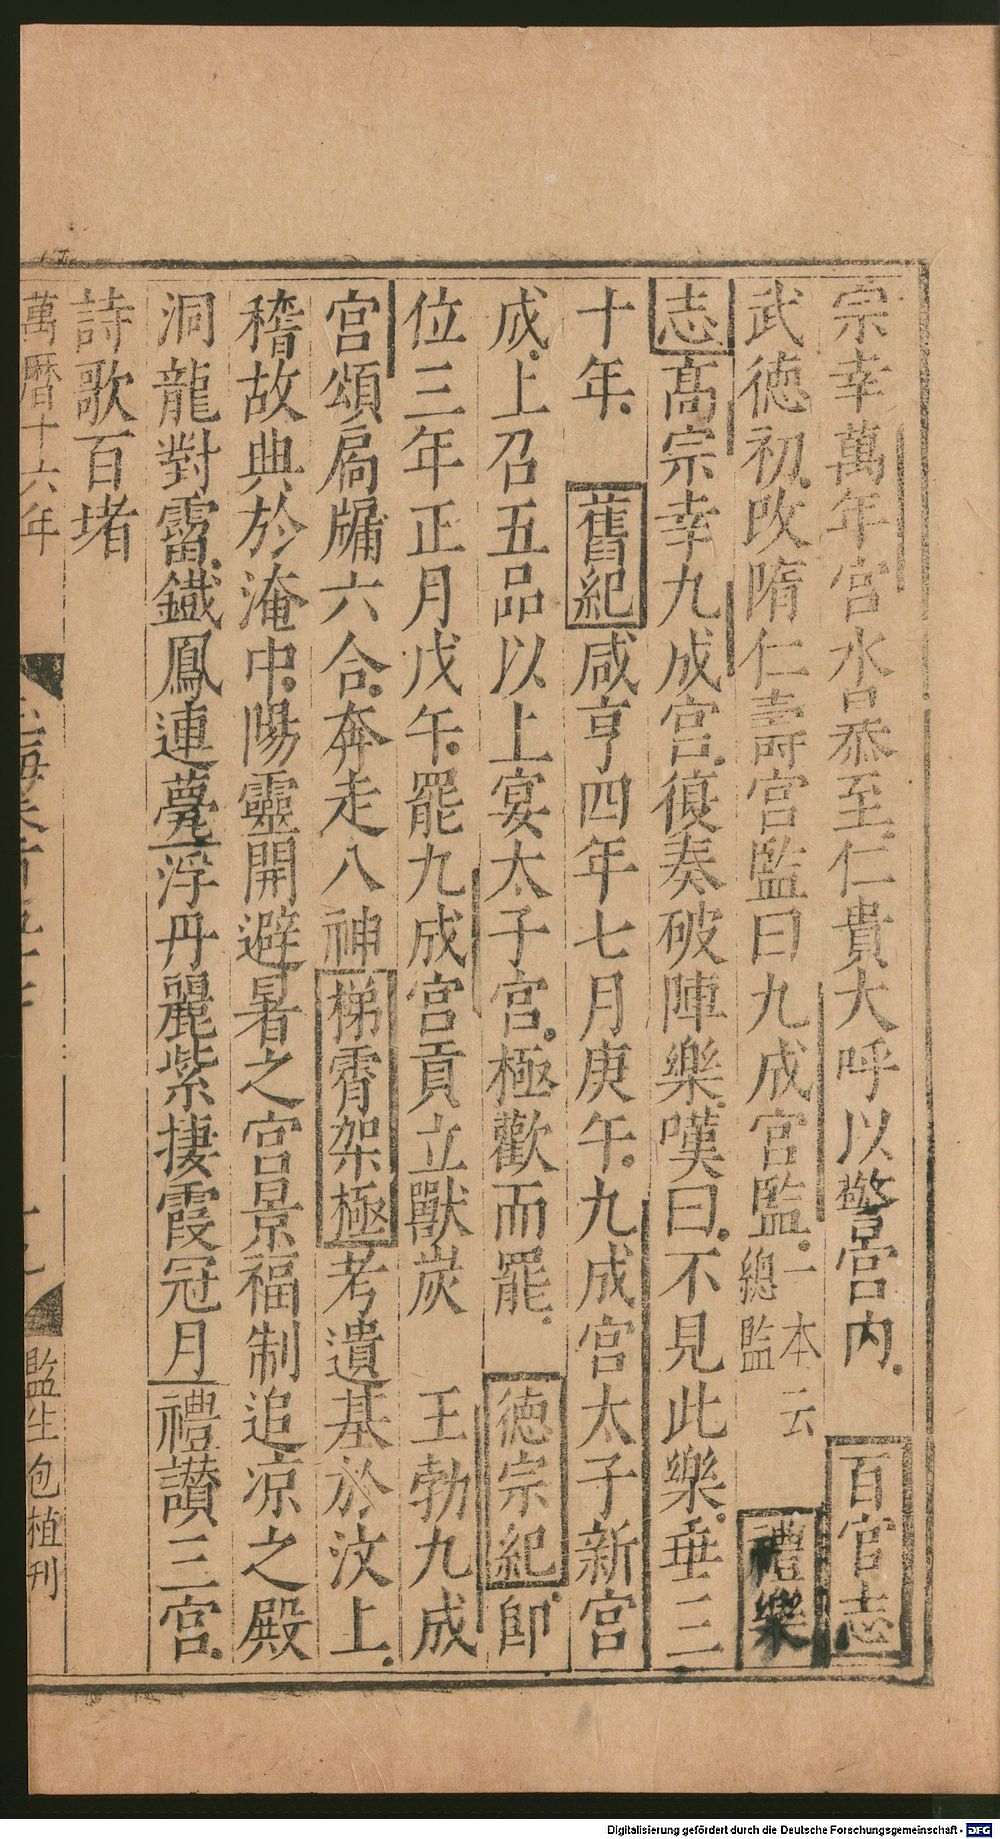 宗幸萬年宫水𣊻至仁貴大呼以警宫内 百官志
武德初改隋仁壽宫監曰九成宫監一本云總監 禮樂
志髙宗幸九成宫復奏破陣樂嘆曰不見此樂垂三
十年 舊紀咸亨四年七月庚午九成宫太子新宫
成上召五品以上宴太子宫極歡而罷 德宗紀即
位三年正月戊午罷九成宫貢立獸炭 王勃九成
宫頌扃牖六合奔走八神梯霄架極考遺基於汶上
稽故典於淹中陽靈開避暑之宫景福制追凉之殿
洞龍對霤鐵鳳連甍浮丹麗紫捿霞冠月禮讃三宫
詩歌百堵
萬曆十六年
監生包植刊
Digitalisierung gefördert durch die Deutsche Forschungsgemeinschaft - DFG